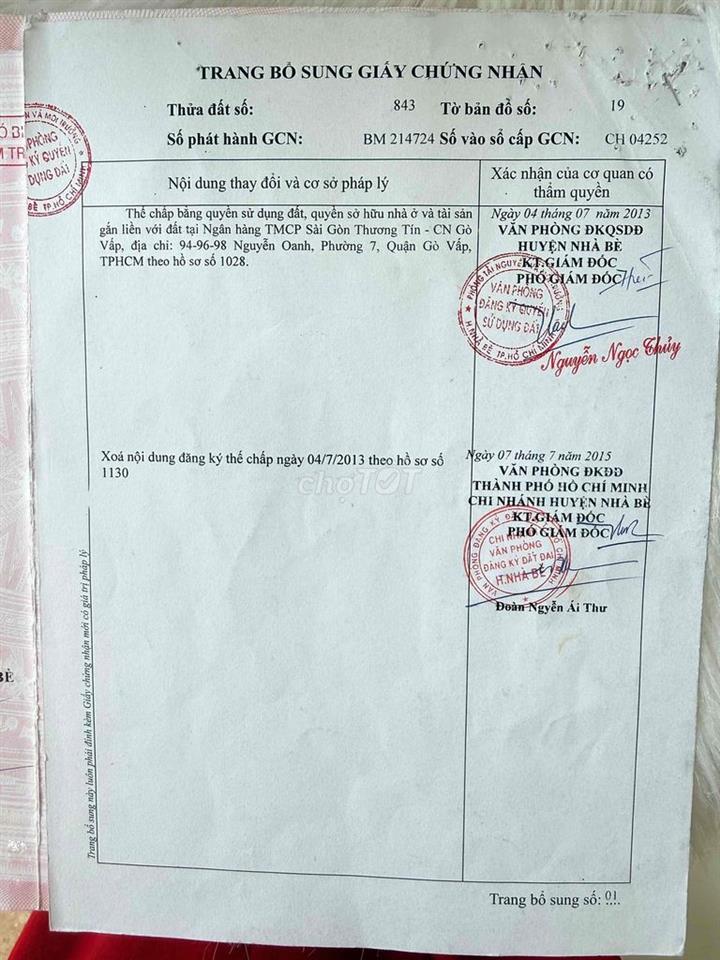 TRANG BỔ SUNG GIẤY CHỨNG NHẬN
Thửa đất số: 843 Tờ bản đồ số: 19
Số phát hành GCN: BM 214724 Số vào sổ cấp GCN: CH 04252
Nội dung thay đổi và cơ sở pháp lý
Xác nhận của cơ quan có
thẩm quyền
Thế chấp bằng quyền sử dụng đất, quyền sở hữu nhà ở và tài sản
gắn liền với đất tại Ngân hàng TMCP Sài Gòn Thương Tín - CN Gò
Vấp, địa chỉ: 94-96-98 Nguyễn Oanh, Phường 7, Quận Gò Vấp,
TPHCM theo hồ sơ số 1028.
Ngày 04 tháng 07 năm 2013
VĂN PHÒNG ĐKQSDĐ
HUYỆN NHÀ BÈ
KT.GIÁM ĐỐC
PHÓ GIÁM ĐỐC
VĂN PHÒNG
ĐĂNG KÝ QUYỀN
SỬ DỤNG ĐẤT
H.NHÀ BÈ TP.HỒ CHÍ MINH
Nguyễn Ngọc Thủy
Xoá nội dung đăng ký thế chấp ngày 04/7/2013 theo hồ sơ số
1130
Ngày 07 tháng 7 năm 2015
VĂN PHÒNG ĐKĐĐ
THÀNH PHỐ HỒ CHÍ MINH
CHI NHÁNH HUYỆN NHÀ BÈ
KT.GIÁM ĐỐC
PHÓ GIÁM ĐỐC
CHI NHÁNH
VĂN PHÒNG
ĐĂNG KÝ ĐẤT ĐAI
H.NHÀ BÈ
Đoàn Ngyễn Ái Thư
chợTỐT
VÀ MÔI TRƯỜNG
PHÒNG
KÝ QUYỀN
DỤNG ĐẤT
TP.HỒ CHÍ MINH
BÈ
Trang bổ sung này luôn phải đính kèm Giấy chứng nhận mới có giá trị pháp lý
Trang bổ sung số: 01